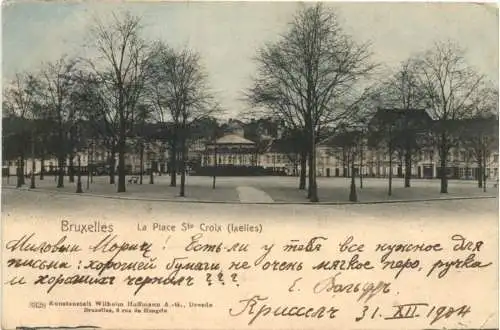 Bruxelles
La Place Ste Croix (Ixelles)
Миловын Морiц! Есть-ли у тебя все нужное для
письма: хорошей бумаги, не очень мягкое перо, ручка
и хороших чернил???
39328 Kunstanstalt Wilhelm Hoffmann A.-G., Dresde
Bruxelles, 8 rue de Hongrie
31. XII. 1904